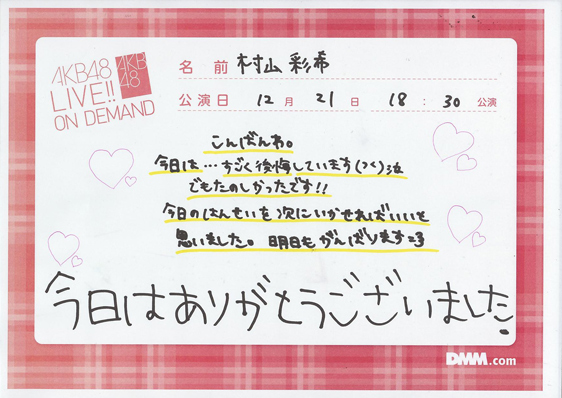 AKB48
LIVE!!
ON DEMAND
AKB
48
名 前 村山 彩希
公演日 12 月 21 日 18 : 30 公演
こんばんわ。
今日は…すごく後悔しています(つ<)泣
でもたのしかったです!!
今日のはんせいを次にいかせればいいと
思いました。 明日もがんばります=3
今日はありがとうございました。
DMM.com